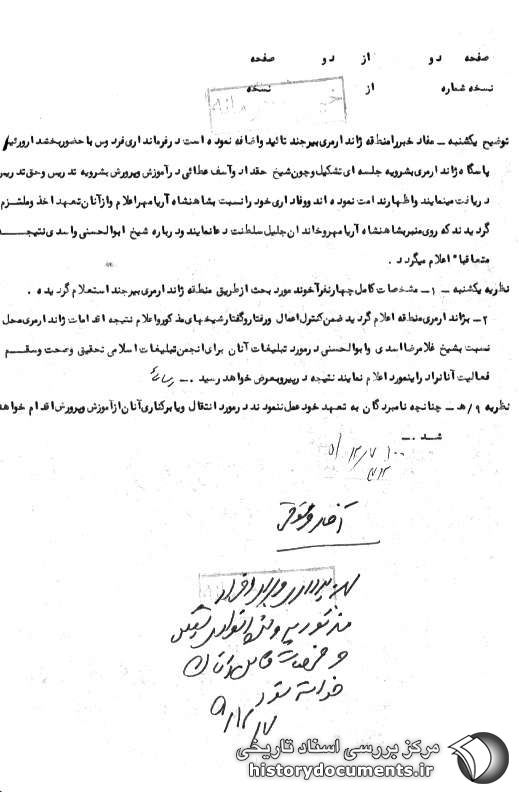 صفحه دو از دو صفحه
نسخه شماره از نسخه
توضیح یکشنبه – مفاد خبر را منطقه ژاندارمری بیرجند تائید و اضافه نموده است در فرمانداری فردوس با حضور بخشدار و رئیس
پاسگاه ژاندارمری بشرویه جلسه ای تشکیل و چون شیخ حقداد و آسف عطائی در آموزش و پرورش بشرویه تدریس و حق تدریس
دریافت مینمایند و اظهار ندامت نموده اند و وفاداری خود را نسبت بشاهنشاه آریامهر اعلام و از آنان تعهد اخذ و ملتزم
گردیدند که روی منبر بشاهنشاه آریامهر و خاندان جلیل سلطنت دعا نمایند و درباره شیخ ابوالحسنی و اسدی نتیجه
متعاقبا" اعلام میگردد .
نظریه یکشنبه – ۱– مشخصات کامل چهار نفر آخوند مورد بحث از طریق منطقه ژاندارمری بیرجند استعلام گردیده .
۲– بژاندارمری منطقه اعلام گردید ضمن کنترل اعمال و رفتار و گفتار شیخهای مذکور و اعلام نتیجه اقدامات ژاندارمری محل
نسبت بشیخ غلامرضا اسدی و ابوالحسنی در مورد تبلیغات آنان برای انجمن تبلیغات اسلامی تحقیق و صحت و سقم
فعالیت آنانرا در اینمورد اعلام نمایند نتیجه در پیرو بعرض خواهد رسید .–
نظریه ۹/ هـ – چنانچه نامبردگان به تعهد خود عمل ننمودند در مورد انتقال و یا برکناری آنان از آموزش و پرورش اقدام خواهد
شد .–
مرکز بررسی اسناد تاریخی
historydocuments.ir